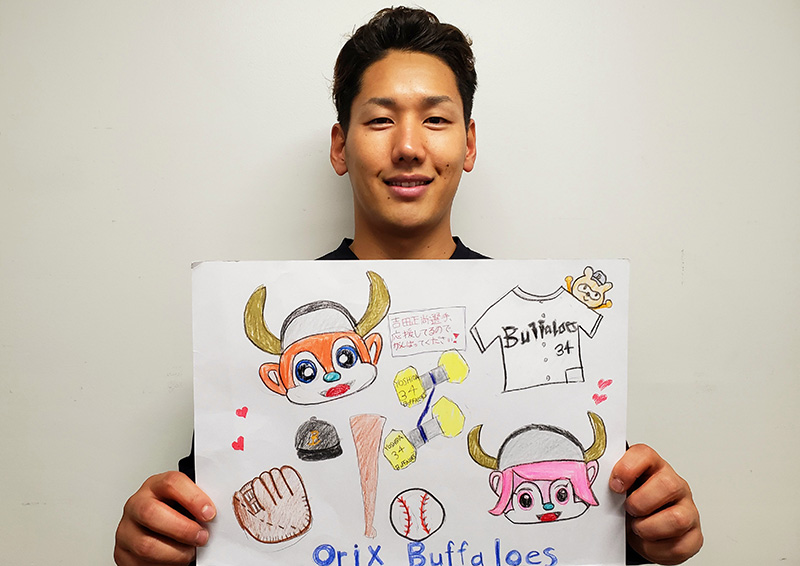 吉田正尚選手、
応援してるので、
がんばってください!
Buffaloes
34
YOSHIDA
34
BUFFALOES
YOSHIDA
34
BUFFALOES
B
Orix Buffaloes